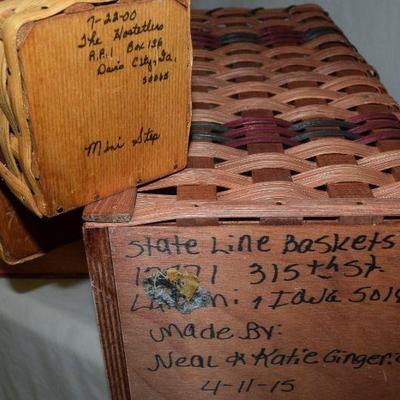 7-22-00
The Hostetlers
R.R.1 Box 156
Davis City, Ia.
50065
Mini Step
State Line Baskets
315th St.
Iowa
Made By:
Neal & Katie
4-11-15